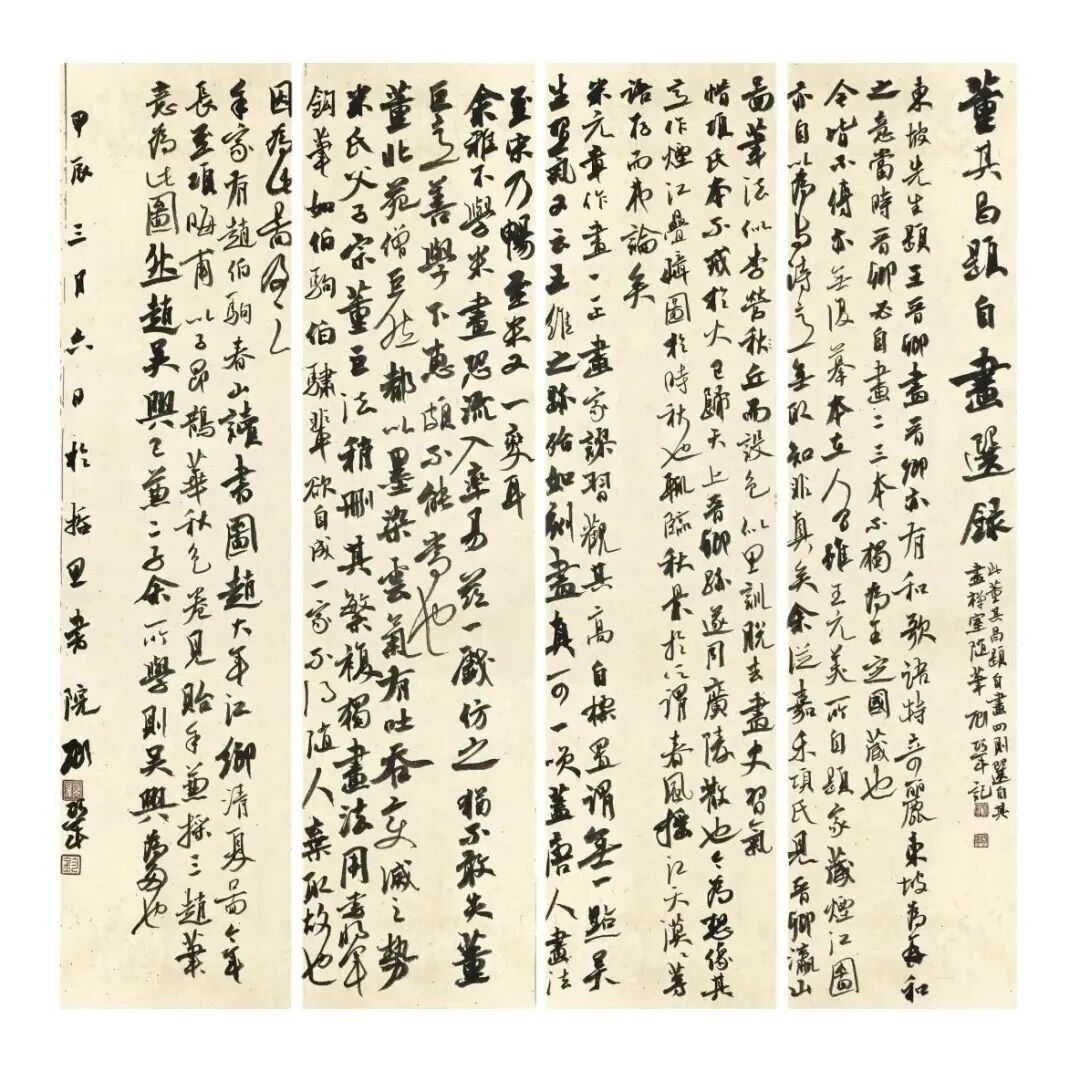 董其昌題自畫選錄
此董其昌題自畫四則選自其
畫禪室隨筆 記
東坡先生題王晉卿畫晉卿亦有和歌語特奇麗東坡為再和
之意當時晉卿必自畫二三本不獨為王定國藏也
今皆不傳亦無復摹本在人間雖王元美所自題家藏煙江圖
亦自以為與詩意無取知非真矣余從嘉禾項氏見晉卿瀛山
圖筆法似李營秋丘而設色似思訓脫去畫史習氣
惜項氏本不戒於火已歸天上晉卿跡遂同廣陵散也今為想像其
意作煙江疊嶂圖於時秋也輒臨秋景於所謂春風搖江天漠漠等
語存而弗論矣
米元章作畫一正畫家謬習觀其高自標置謂無一點吳
生習氣又云王維之跡殆如刻畫真可一笑蓋唐人畫法
至宋乃暢至米又一變耳
余雅不學米畫恐流入率易茲一戲仿之猶不敢失董
巨意善學下惠頗不能當也
董北苑僧巨然都以墨染雲氣有吐吞變滅之勢
米氏父子宗董巨法稍刪其繁複獨畫法用李將軍
鉤筆如伯駒伯驌輩欲自成一家不得隨人棄取故也
因為此圖及之
余家有趙伯駒春山讀書圖趙大年江鄉清夏圖今年
長至項晦甫以子昂鵲華秋色卷見貽余兼採三趙筆
意為此圖然趙吳興已兼二子余所學則吳興為多也
甲辰三月六日於哲思書院